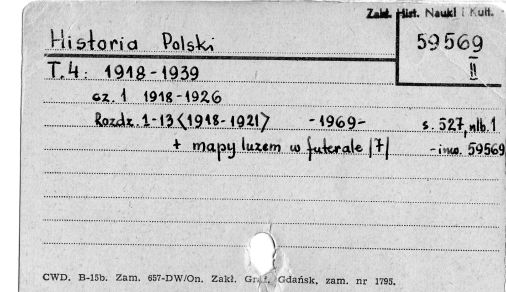 Zakł. Hist. Nauki i Kult.
Historia Polski
59569
II
T.4: 1918-1939
cz. 1 1918-1926
Rozdz. 1-13 <1918-1921> -1969- s. 527, nlb. 1
+ mapy luzem w futerale /7/ -inw. 59569
CWD. B-15b. Zam. 657-DW/On. Zakł. Graf. Gdańsk, zam. nr 1795.